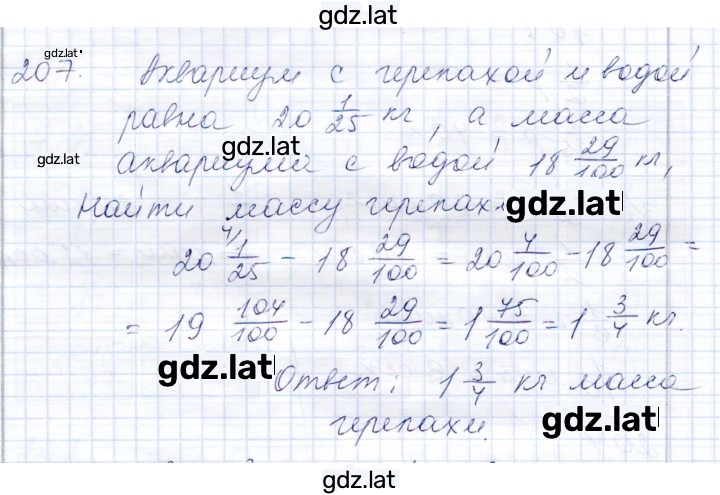 gdz.lat
207. Аквариум с черепахой и водой
gdz.lat
равна 20 1/25 кг, а масса
gdz.lat gdz.lat
аквариума с водой 18 29/100 кг,
найти массу черепах gdz.lat
20 1/25 4/ - 18 29/100 = 20 4/100 - 18 29/100 =
= 19 104/100 - 18 29/100 = 1 75/100 = 1 3/4 кг.
gdz.lat gdz.lat
Ответ: 1 3/4 кг масса
черепахи. gdz.lat
gdz.lat